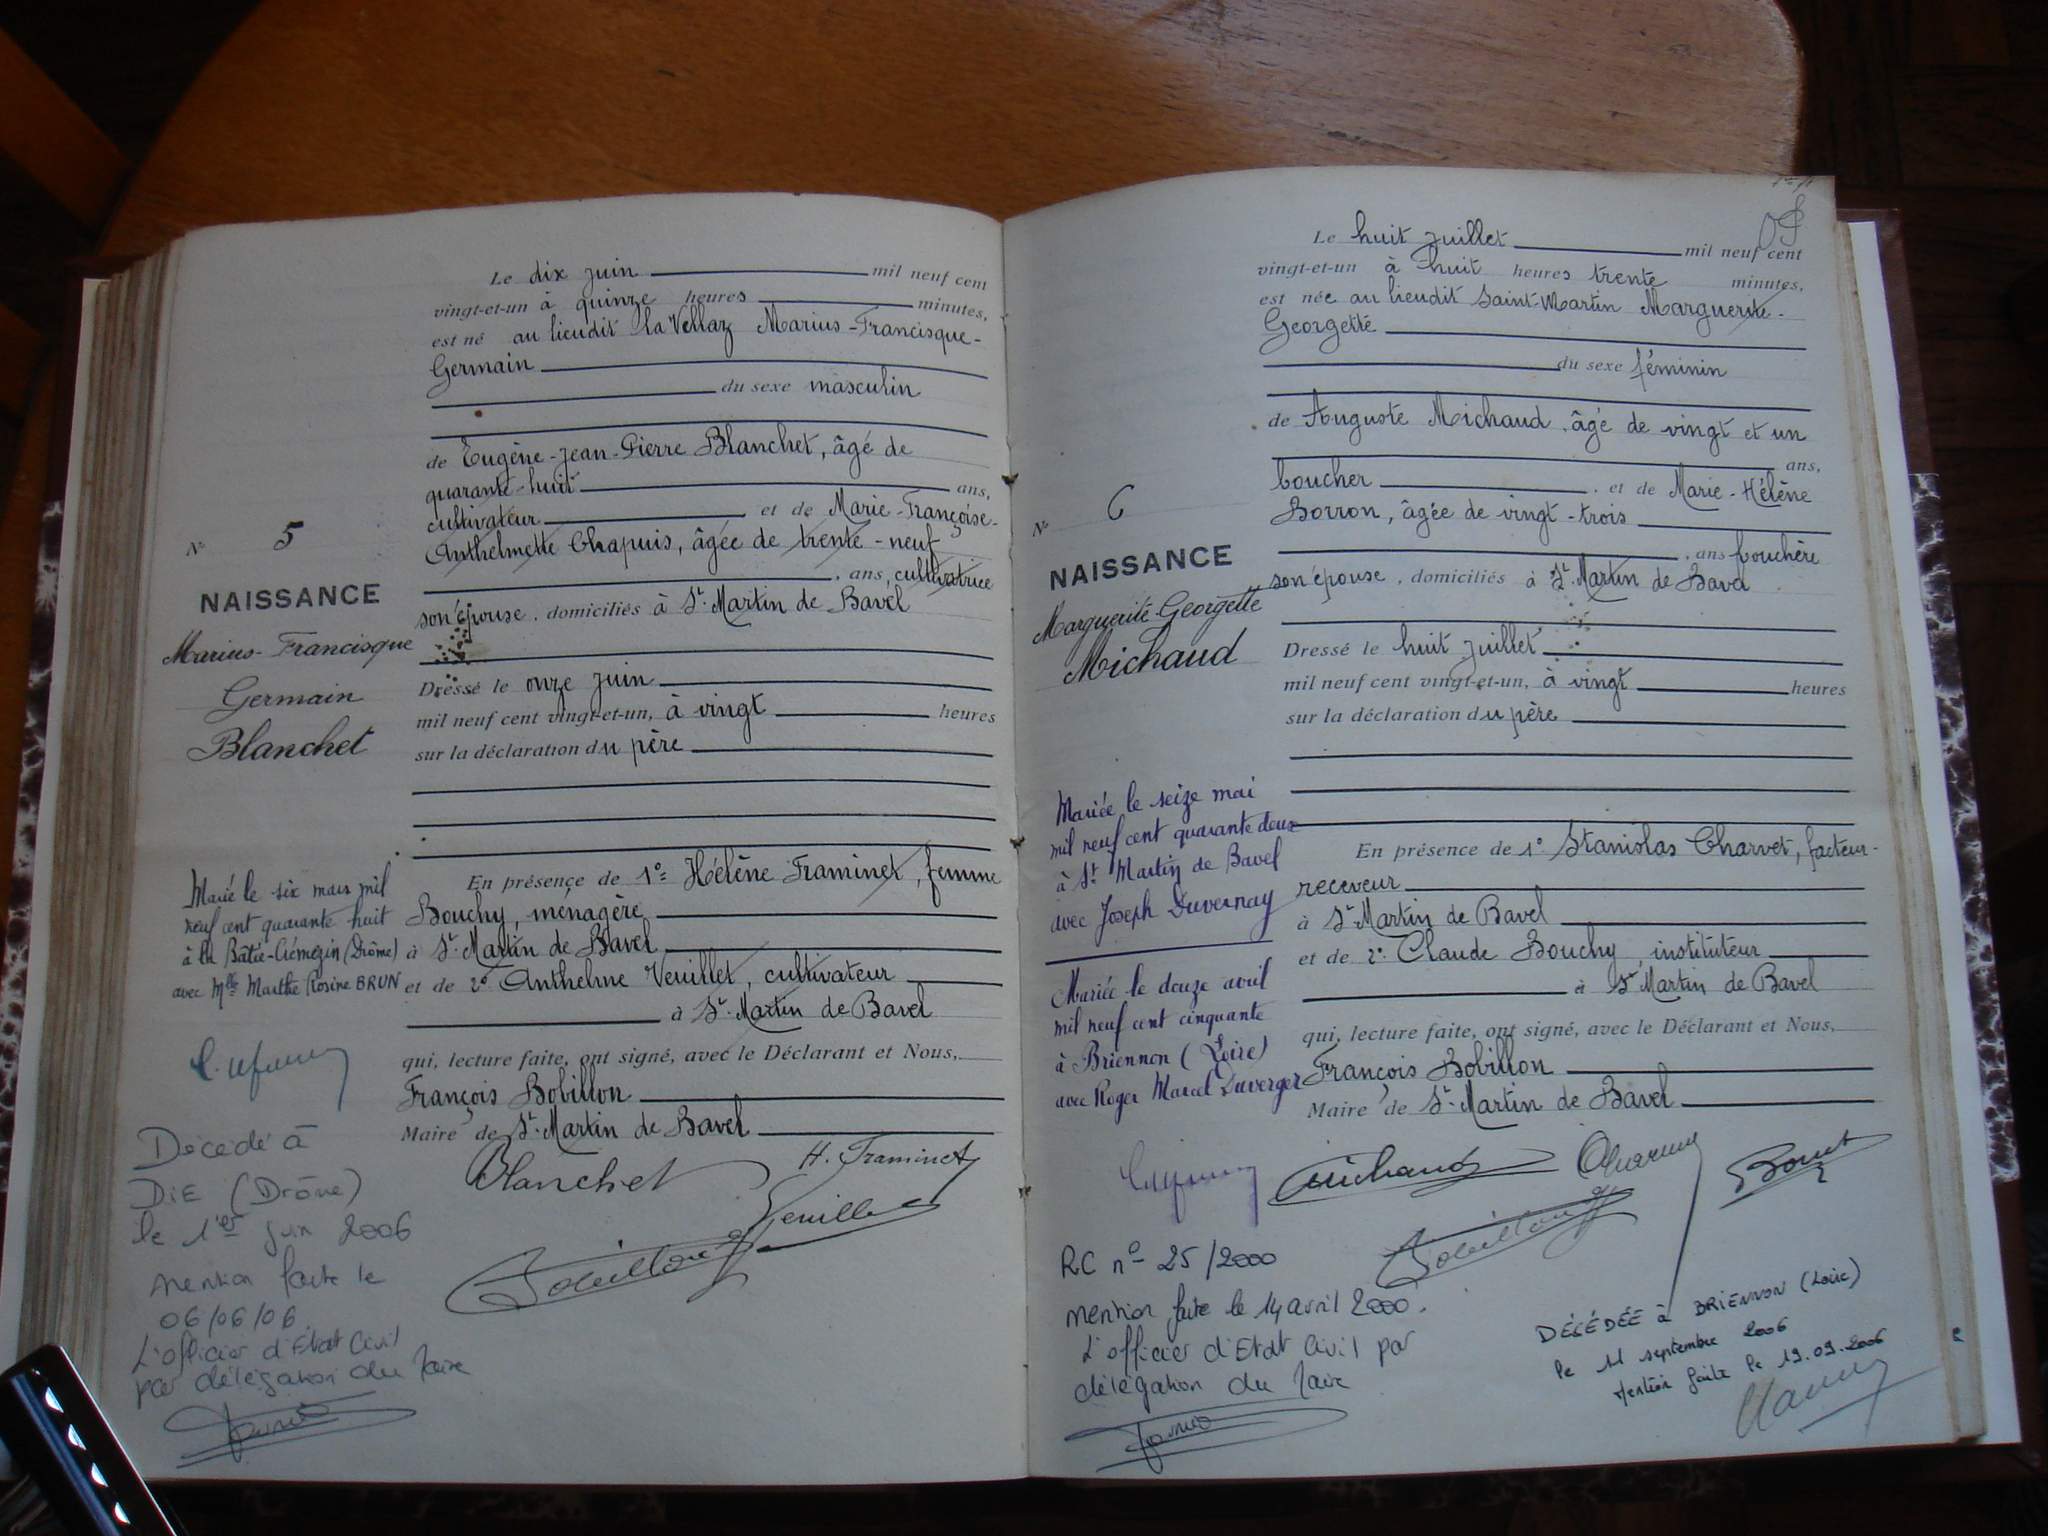 Le dix juin mil neuf cent
vingt-et-un à quinze heures minutes,
est né au lieudit la Vellaz Marius-Francisque-
Germain
du sexe masculin
de Eugène-Jean-Pierre Blanchet, âgé de
quarante-huit ans,
cultivateur et de Marie-Françoise-
Anthelmette Chapuis, âgée de trente-neuf
, ans, cultivatrice
son épouse, domiciliés à St. Martin de Bavel
Dressé le onze juin
mil neuf cent vingt-et-un, à vingt heures
sur la déclaration du père
En présence de 1º Hélène Framinet, femme
Bouchy, ménagère
à St. Martin de Bavel
et de 2º Anthelme Veuillet, cultivateur
à St. Martin de Bavel
qui, lecture faite, ont signé, avec le Déclarant et Nous,
François Bobillon
Maire de St. Martin de Bavel
Blanchet H. Framinet
Veuillet
Bobillon
Nº 5
NAISSANCE
Marius-Francisque
Germain
Blanchet
Marié le six mars mil
neuf cent quarante huit
à la Bâtie-Crémezin (Drôme)
avec Mlle Marthe Rosine BRUN
Décédé à
DIE (Drôme)
le 1er juin 2006
mention faite le
06/06/06
L'officier d'Etat Civil
par délégation du Maire
Le huit juillet mil neuf cent
vingt-et-un à huit heures trente minutes,
est née au lieudit Saint-Martin Marguerite-
Georgette
du sexe féminin
de Auguste Michaud, âgé de vingt et un
ans,
boucher, et de Marie-Hélène
Borron, âgée de vingt-trois
, ans bouchère
son épouse, domiciliés à St. Martin de Bavel
Dressé le huit juillet
mil neuf cent vingt-et-un, à vingt heures
sur la déclaration du père
En présence de 1º Stanislas Charvet, facteur-
receveur
à St Martin de Bavel
et de 2º Claude Bouchy, instituteur
à St Martin de Bavel
qui, lecture faite, ont signé, avec le Déclarant et Nous,
François Bobillon
Maire de St. Martin de Bavel
Michaud
Bobillon
Nº 6
NAISSANCE
Marguerite-Georgette
Michaud
Mariée le seize mai
mil neuf cent quarante deux
à St Martin de Bavel
avec Joseph Duvernay
Mariée le douze avril
mil neuf cent cinquante
à Briennon (Loire)
avec Roger Marcel Duverger
RC nº 25/2000
mention faite le 14 avril 2000.
L'officier d'Etat Civil par
délégation du Maire
DÉCÉDÉE à BRIENNON (Loire)
le 11 septembre 2006
Mention faite le 19.09.2006